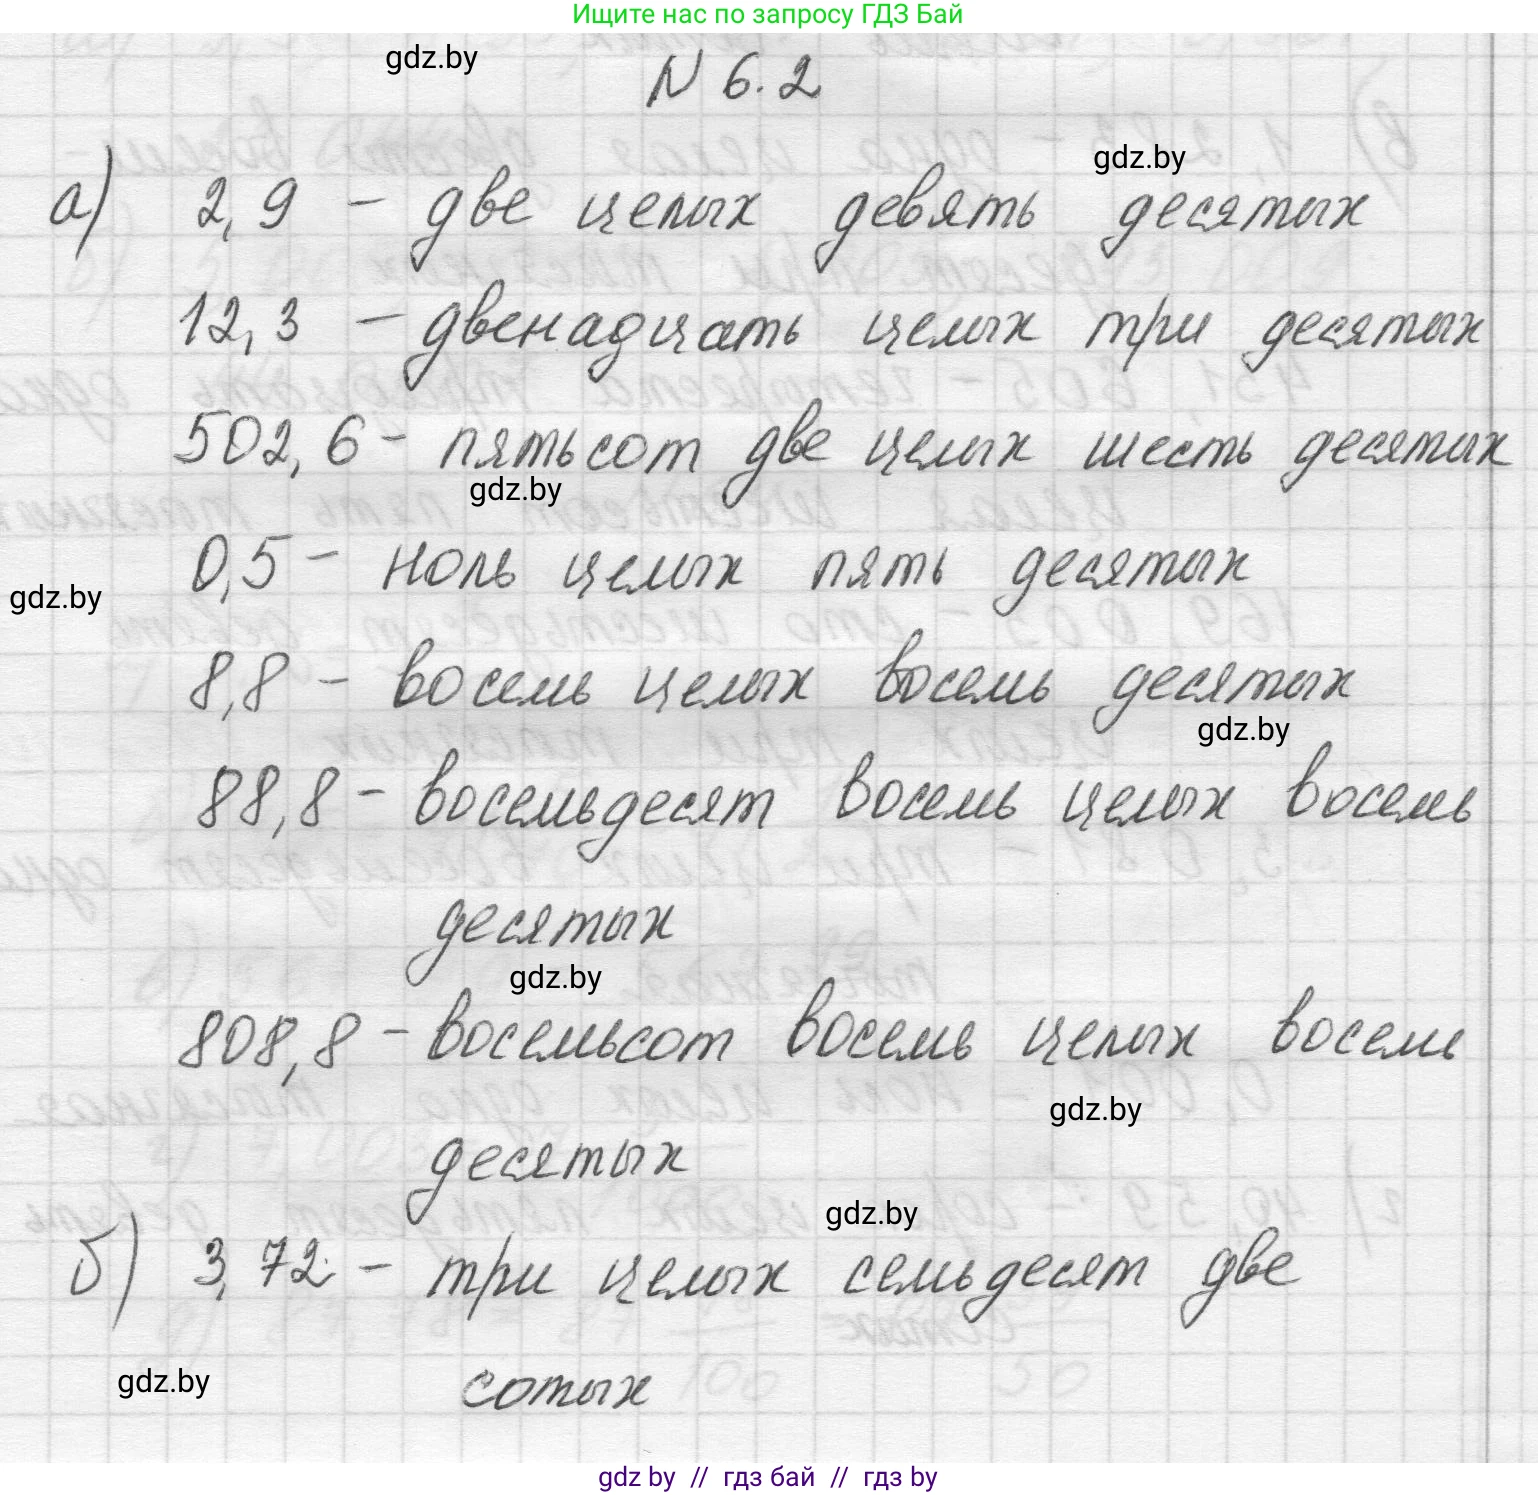 Ищите нас по запросу ГДЗ Бай
gdz.by
N 6.2
gdz.by
а) 2,9 – две целых девять десятых
12,3 – двенадцать целых три десятых
502,6 – пятьсот две целых шесть десятых
gdz.by
0,5 – ноль целых пять десятых
gdz.by
8,8 – восемь целых восемь десятых
gdz.by
88,8 – восемьдесят восемь целых восемь
десятых
gdz.by
808,8 – восемьсот восемь целых восемь
gdz.by
десятых
gdz.by
б) 3,72 – три целых семьдесят две
gdz.by
сотых
gdz by // гдз бай // гдз by